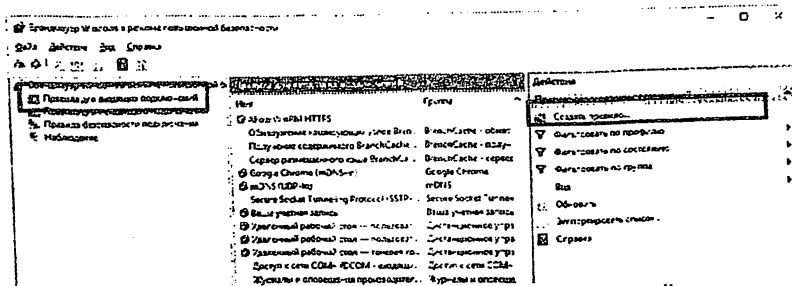 Брандмауэр Windows в режиме повышенной безопасности
Файл Действие Вид Справка
Правила для входящих подключений
Правила безопасности подключения
Наблюдение
Имя Группа
Allow WinRM HTTPS
BranchCache -
Получение содержимого BranchCache
Сервер размещенного кэша BranchCa... BranchCache - сервер
Google Chrome (mDNS-In) Google Chrome
mDNS (UDP-In) mDNS
Secure Socket Tunneling Protocol (SSTP-... Secure Socket Tunnel
Ваша учетная запись Ваша учетная запись
Удаленный рабочий стол — пользоват... Дистанционное упра
Удаленный рабочий стол — пользоват... Дистанционное упра
Удаленный рабочий стол — теневое ко... Дистанционное упра
Доступ к сети COM+ (DCOM - входящи... Доступ к сети COM+
Журналы и оповещения производител... Журналы и оповеще
Действия
Создать правило...
Фильтровать по профилю
Фильтровать по состоянию
Фильтровать по группе
Вид
Обновить
Экспортировать список...
Справка